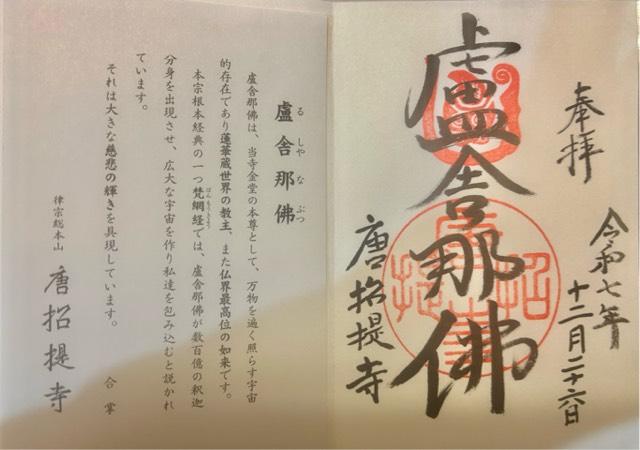 奉拝
令和七年
十二月二十六日
盧舎那佛
唐招提寺
盧舎那佛
る しゃ な ぶつ
盧舎那佛は、当寺金堂の本尊として、万物を遍く照らす宇宙
的存在であり蓮華蔵世界の教主、また仏界最高位の如来です。
本宗根本経典の一つ梵網経では、盧舎那佛が数百億の釈迦
ぼんもうきょう
分身を出現させ、広大な宇宙を作り私達を包み込むと説かれ
ています。
それは大きな慈悲の輝きを具現しています。
合掌
律宗総本山
唐招提寺